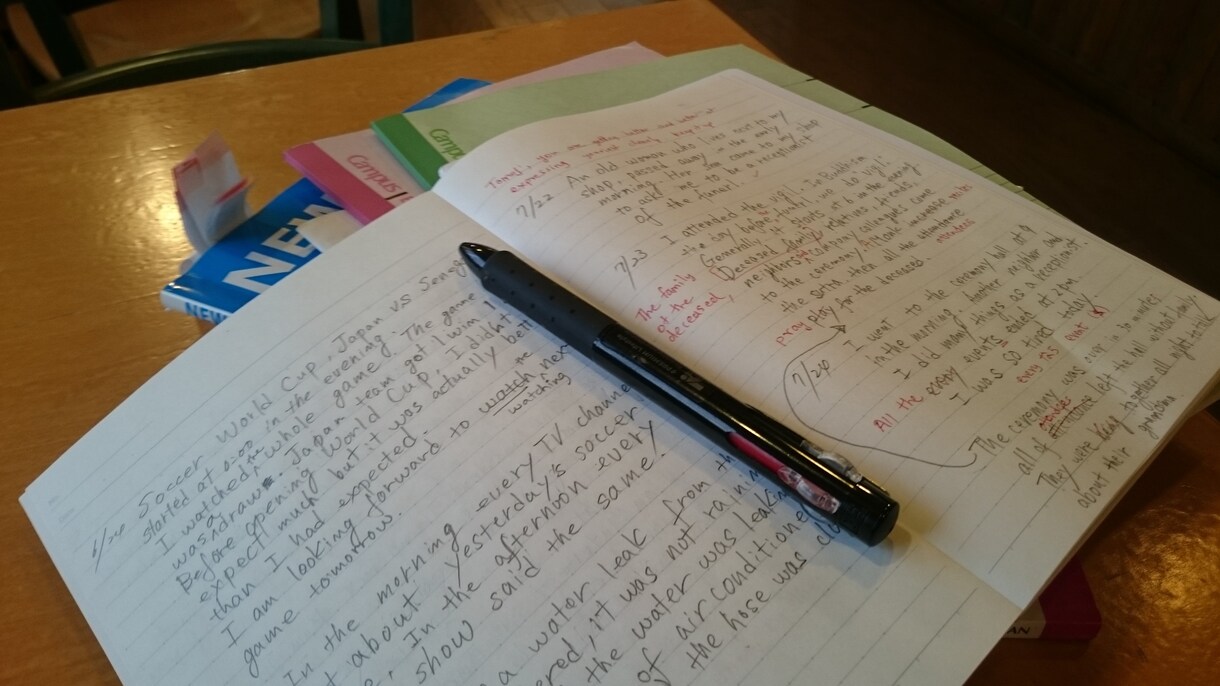 Campus
Campus
NEW
NEW
6/24 Soccer World Cup, Japan vs Seneg
started at 0:00 in the evening. The game
I watched the whole game
was a draw. Japan team got 1
Before opening World Cup, I didn't
expect much but it was actually bett
than I had expected.
I am looking forward to watch
watching
game tomorrow.
In the morning every TV channe
about yesterday's soccer
In the afternoon every
show said the same.
a water leak from th
red, it was not rainin
the water was leakin
of air conditione
the hose was
expressing yourself clearly. Keep it
7/22 An old woman who lives next to my
shop, passed away in the early
morning. Her son came to my shop
to ask me to be a receptionist
of the funeral.
7/23 I attended the vigil. In Buddhism
the day before funeral, we do vigil.
Generally it starts at 6 in the evening
Deceased family, relatives, friends,
neighbors, company colleagues come
to the ceremony
the sutra then all the attendance
attendees
pray play for the deceased.
The family
of the
deceased,
7/24 I went to the ceremony hall
in the morning. Another neighbor and
I did many things as a receptionist.
All the every events ended at 2 pm
I was so tired today.
The ceremony was over in 30 minutes
all of attendance left the hall without
They were together all night
about their grandma